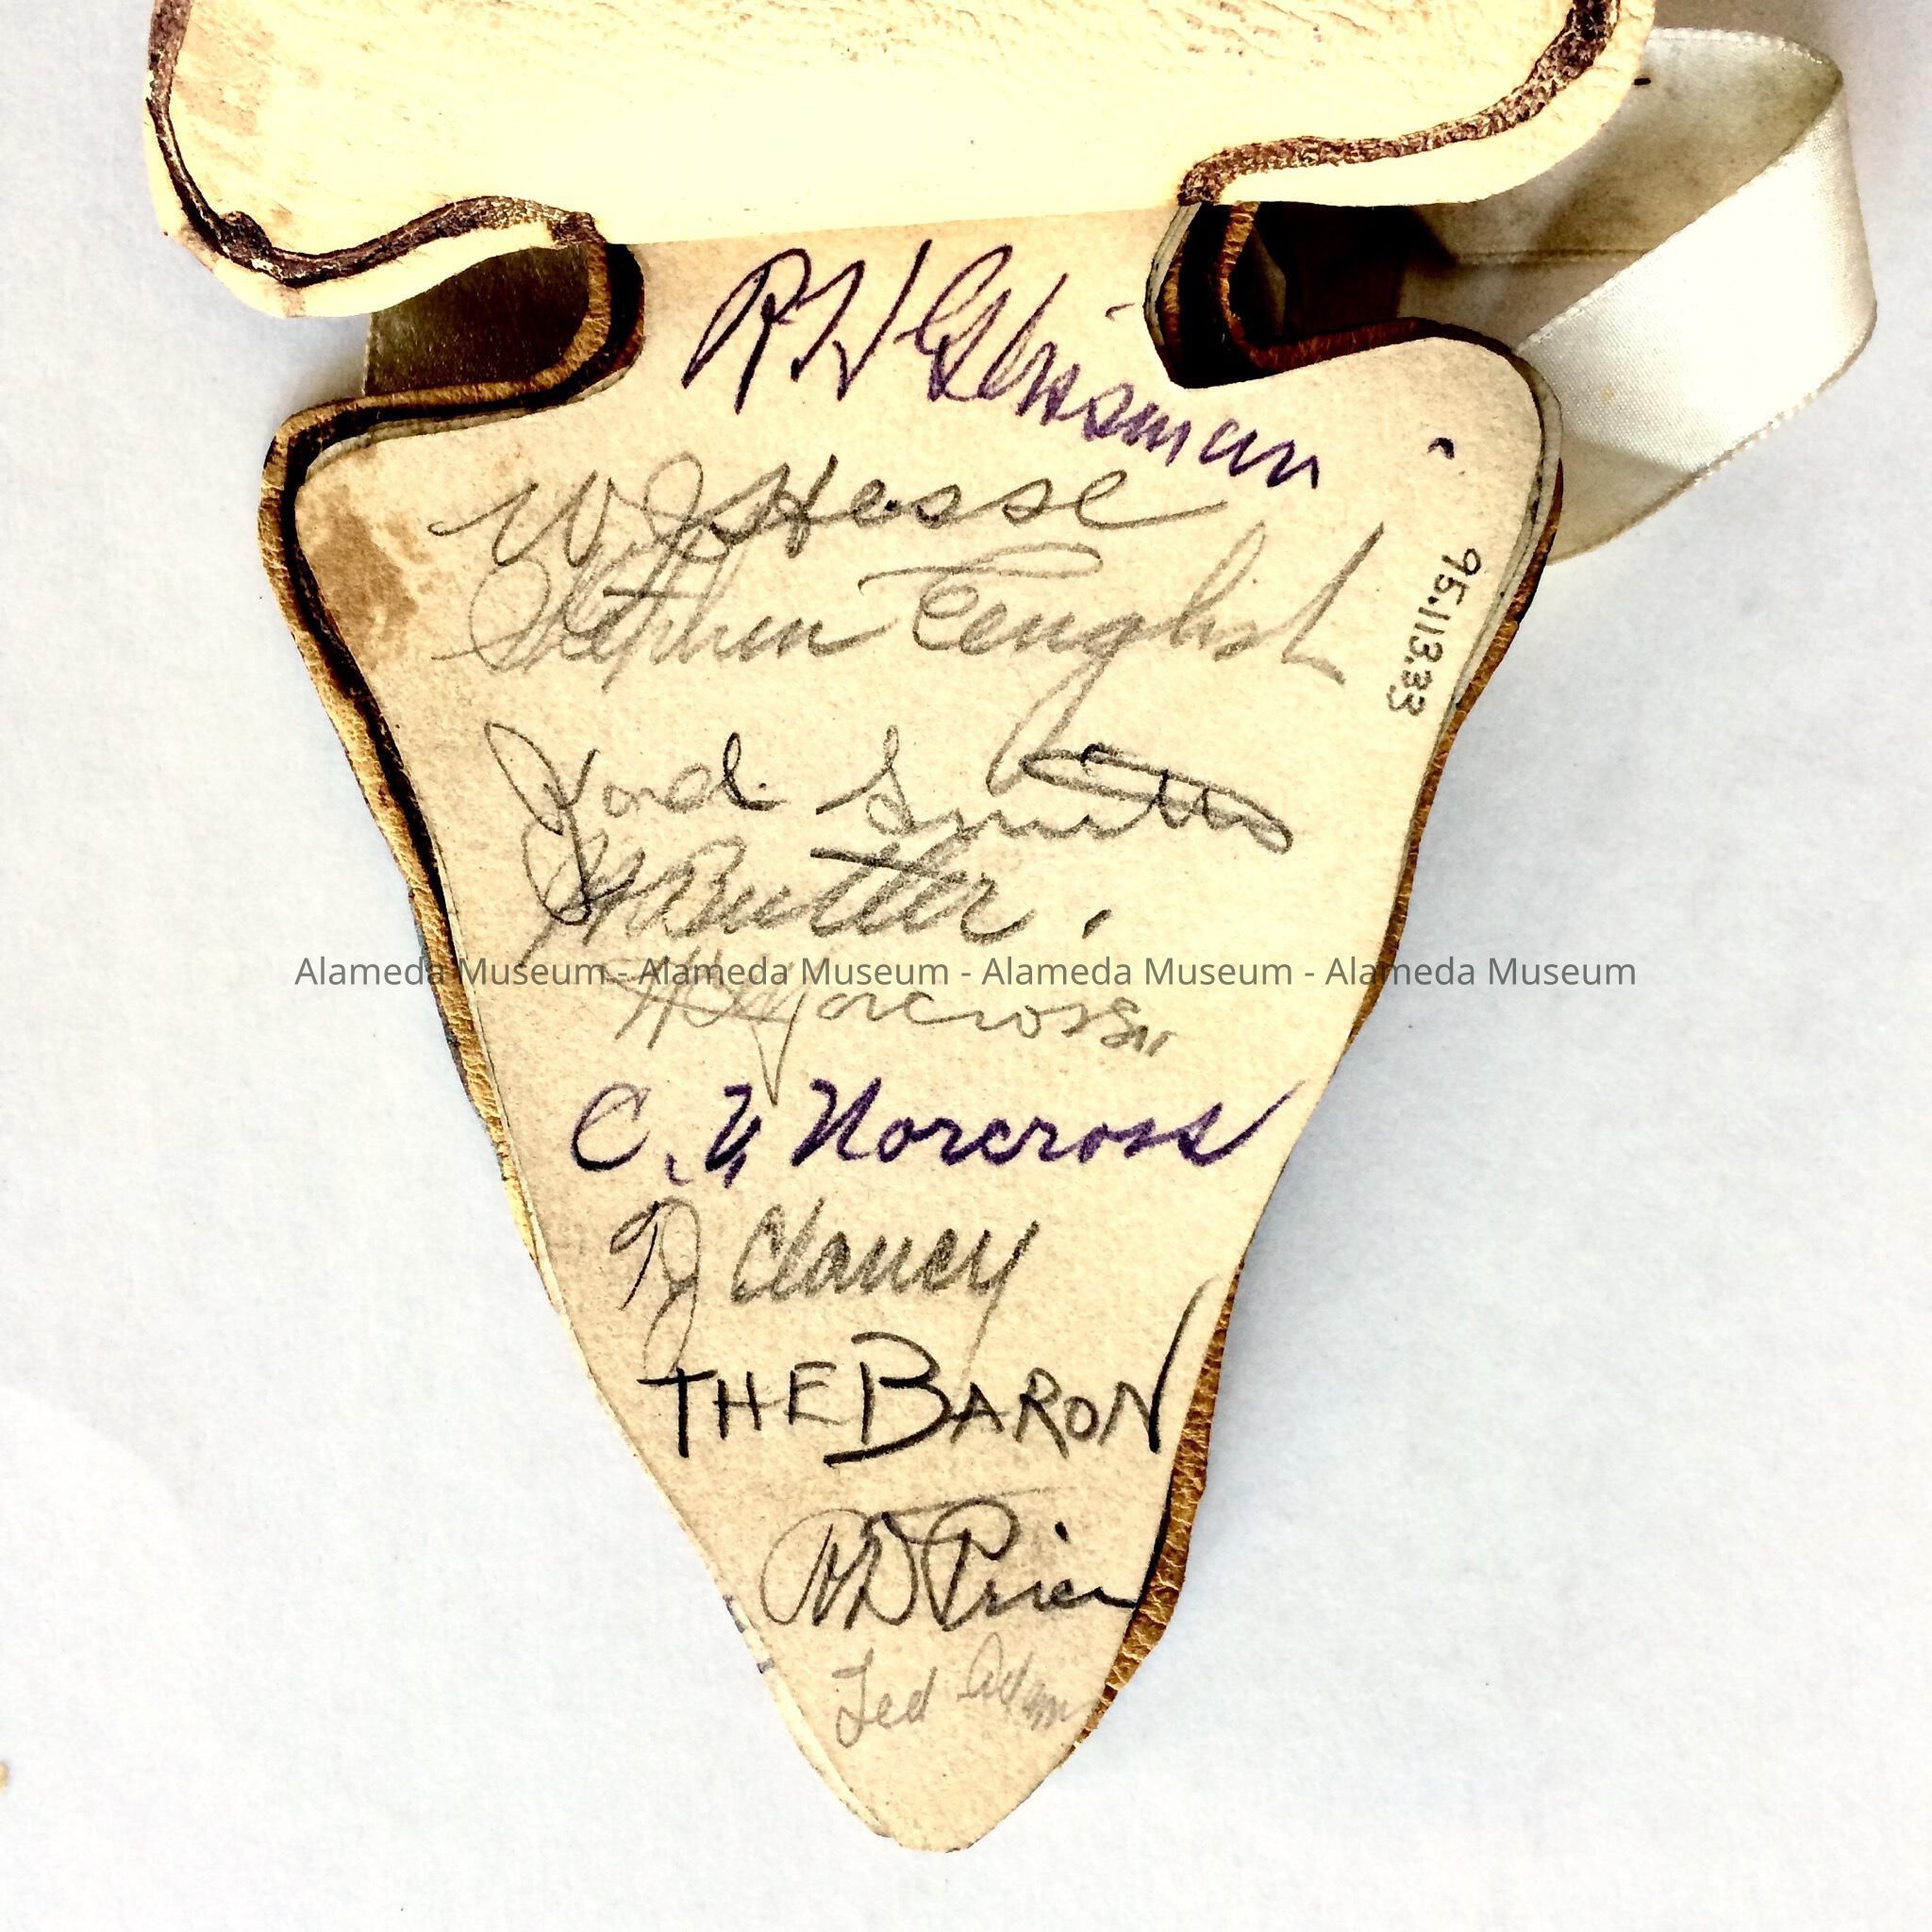 R W Glissman
W J Hesse
Stephen English
95.113.33
Ford Smith
Butler.
Alameda Museum - Alameda Museum - Alameda Museum - Alameda Museum
Norcross
C. V. Norcross
Clancy
THE BARON
R D Price
Ted Adams